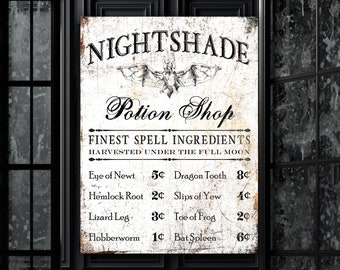 NIGHTSHADE
Potion Shop
FINEST SPELL INGREDIENTS
HARVESTED UNDER THE FULL MOON
Eye of Newt 5¢ Dragon Tooth 8¢
Hemlock Root 2¢ Slips of Yew 4¢
Lizard Leg 3¢ Toe of Frog 2¢
Flobberworm 1¢ Bat Spleen 6¢